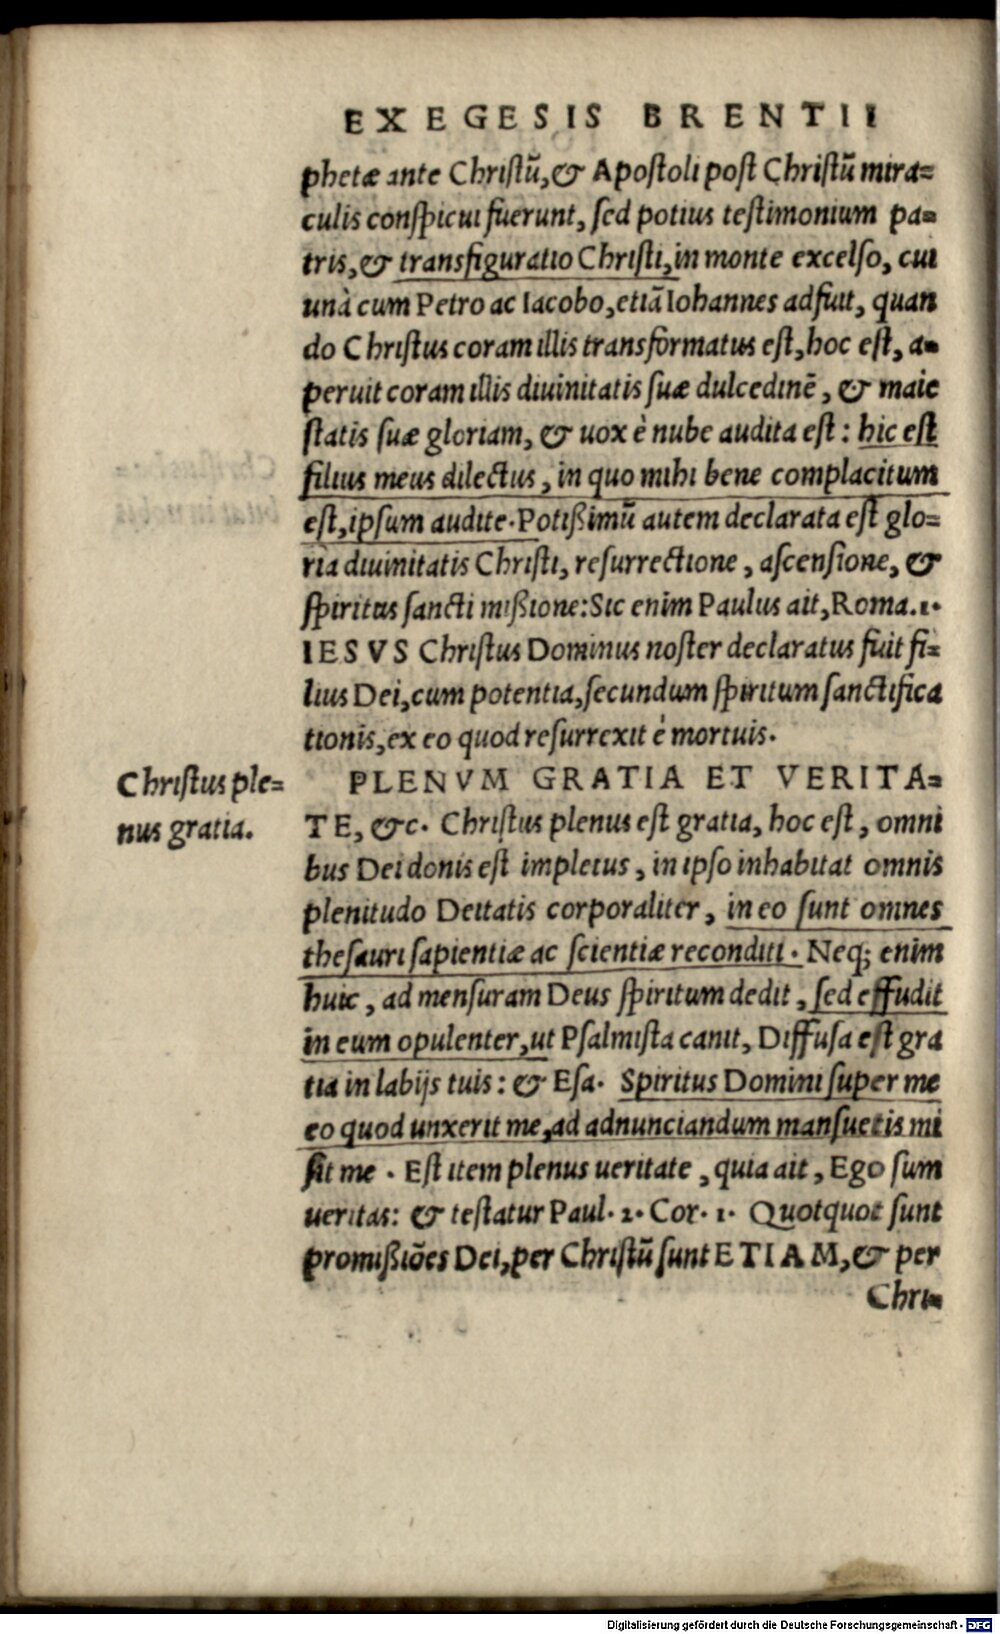 EXEGESIS BRENTII
phetæ ante Christũ, & Apostoli post Christũ mira=
culis conspicui fuerunt, sed potius testimonium pa=
tris, & transfiguratio Christi, in monte excelso, cui
unà cum Petro ac Iacobo, etiã Iohannes adfuit, quan
do Christus coram illis transformatus est, hoc est, a=
peruit coram illis diuinitatis suæ dulcedinẽ, & maie
statis suæ gloriam, & uox è nube audita est: hic est
filius meus dilectus, in quo mihi bene complacitum
est, ipsum audite. Potißimũ autem declarata est glo=
ria diuinitatis Christi, resurrectione, ascensione, &
spiritus sancti mißione: Sic enim Paulus ait, Roma. 1.
IESVS Christus Dominus noster declaratus fuit fi=
lius Dei, cum potentia, secundum spiritum sanctifica
tionis, ex eo quod resurrexit è mortuis.
Christus ple=
nus gratia.
PLENVM GRATIA ET VERITA=
TE, &c. Christus plenus est gratia, hoc est, omni
bus Dei donis est impletus, in ipso inhabitat omnis
plenitudo Deitatis corporaliter, in eo sunt omnes
thesauri sapientiæ ac scientiæ reconditi. Neq; enim
huic, ad mensuram Deus spiritum dedit, sed effudit
in eum opulenter, ut Psalmista canit, Diffusa est gra
tia in labijs tuis: & Esa. Spiritus Domini super me
eo quod unxerit me, ad adnunciandum mansuetis mi
sit me. Est item plenus ueritate, quia ait, Ego sum
ueritas: & testatur Paul. 2. Cor. 1. Quotquot sunt
promißiões Dei, per Christũ sunt ETIAM, & per
Chri=
Digitalisierung gefördert durch die Deutsche Forschungsgemeinschaft - DFG